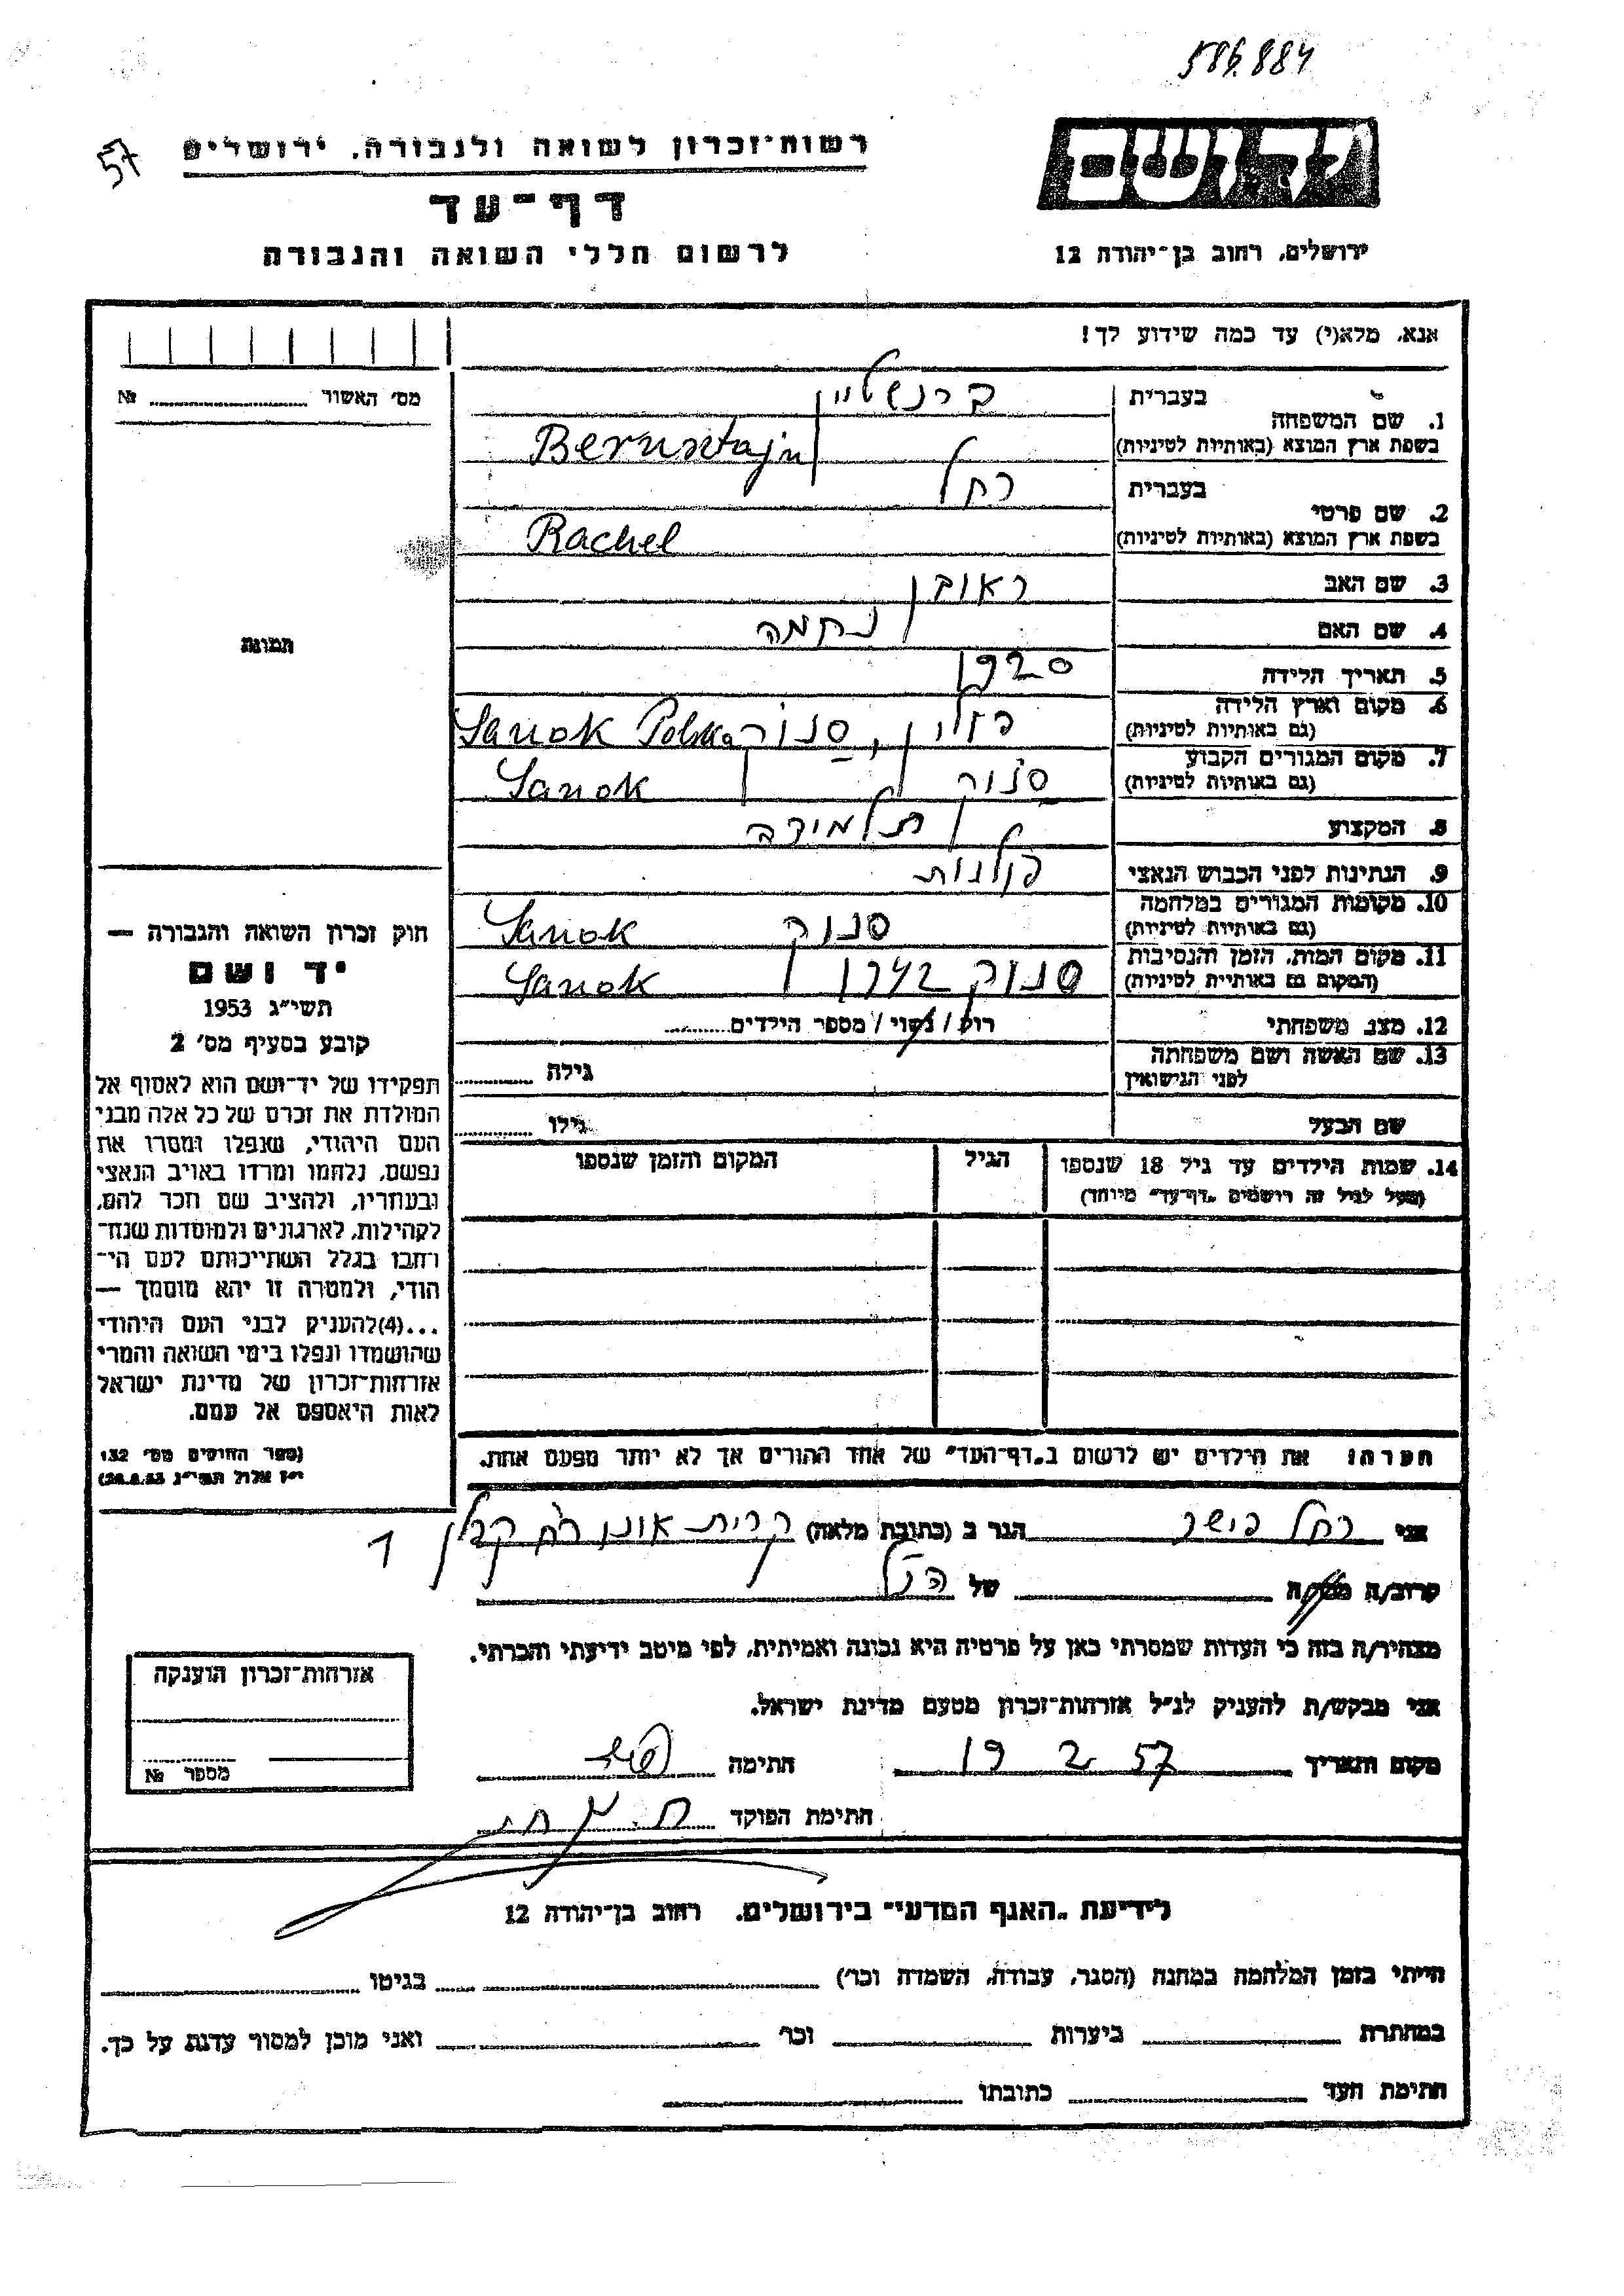 586.884
57
רשות־זכרון לשואה ולגבורה, ירושלים
דף־עד
לרשום חללי השואה והגבורה
יד ושם
ירושלים, רחוב בן־יהודה 12
אנא, מלא(י) עד כמה שידוע לך!
מס' האשור № 
בעברית ברנשטיין
1. שם המשפחה
בשפת ארץ המוצא (באותיות לטיניות) Bernsztajn
בעברית רחל
2. שם פרטי
בשפת ארץ המוצא (באותיות לטיניות) Rachel
3. שם האב ראובן
4. שם האם נחמה
תמונה
5. תאריך הלידה 1920
6. מקום וארץ הלידה
(גם באותיות לטיניות) פולין, סנוק Sanok Polska
7. מקום המגורים הקבוע
(גם באותיות לטיניות) סנוק Sanok
8. המקצוע תלמידה
9. הנתינות לפני הכבוש הנאצי פולנית
10. מקומות המגורים במלחמה
(גם באותיות לטיניות) סנוק Sanok
11. מקום המות, הזמן והנסיבות
(המקום גם באותיות לטיניות) סנוק 1942 Sanok
12. מצב משפחתי רווק / נשוי / מספר הילדים
13. שם האשה ושם משפחתה
לפני הנישואין גילה
שם הבעל גילו
14. שמות הילדים עד גיל 18 שנספו הגיל המקום והזמן שנספו
(מעל לגיל זה רושמים „דף־עד" מיוחד)
חוק זכרון השואה והגבורה —
יד ושם
תשי"ג 1953
קובע בסעיף מס' 2
תפקידו של יד־ושם הוא לאסוף אל
המולדת את זכרם של כל אלה מבני
העם היהודי, שנפלו ומסרו את
נפשם, נלחמו ומרדו באויב הנאצי
ובעוזריו, ולהציב שם וזכר להם,
לקהילות, לארגונים ולמוסדות שנח־
רבו בגלל השתייכותם לעם הי־
הודי, ולמטרה זו יהא מוסמך —
...(4)להעניק לבני העם היהודי
שהושמדו ונפלו בימי השואה והמרי
אזרחות־זכרון של מדינת ישראל
לאות היאספם אל עמם.
(ספר החוקים מס' 132
י"ז אלול תשי"ג 28.8.53)
הערה: את הילדים יש לרשום ב„דף־העד" של אחד ההורים אך לא יותר מפעם אחת.
אני רחל פישר הגר ב (כתובת מלאה) קרית אונו רח קפלן 1
קרוב/ה מכר/ה של הנ"ל
מצהיר/ה בזה כי העדות שמסרתי כאן על פרטיה היא נכונה ואמיתית, לפי מיטב ידיעתי והכרתי.
אני מבקש/ת להעניק לנ"ל אזרחות־זכרון מטעם מדינת ישראל.
מקום ותאריך 19 2 57 חתימה פישר
חתימת הפוקד
אזרחות־זכרון הוענקה
מספר №
לידיעת „האגף המדעי" בירושלים, רחוב בן־יהודה 12
הייתי בזמן המלחמה במחנה (הסגר, עבודה, השמדה וכו') בגיטו
במחתרת ביערות וכו' ואני מוכן למסור עדות על כך.
חתימת העד כתובתו